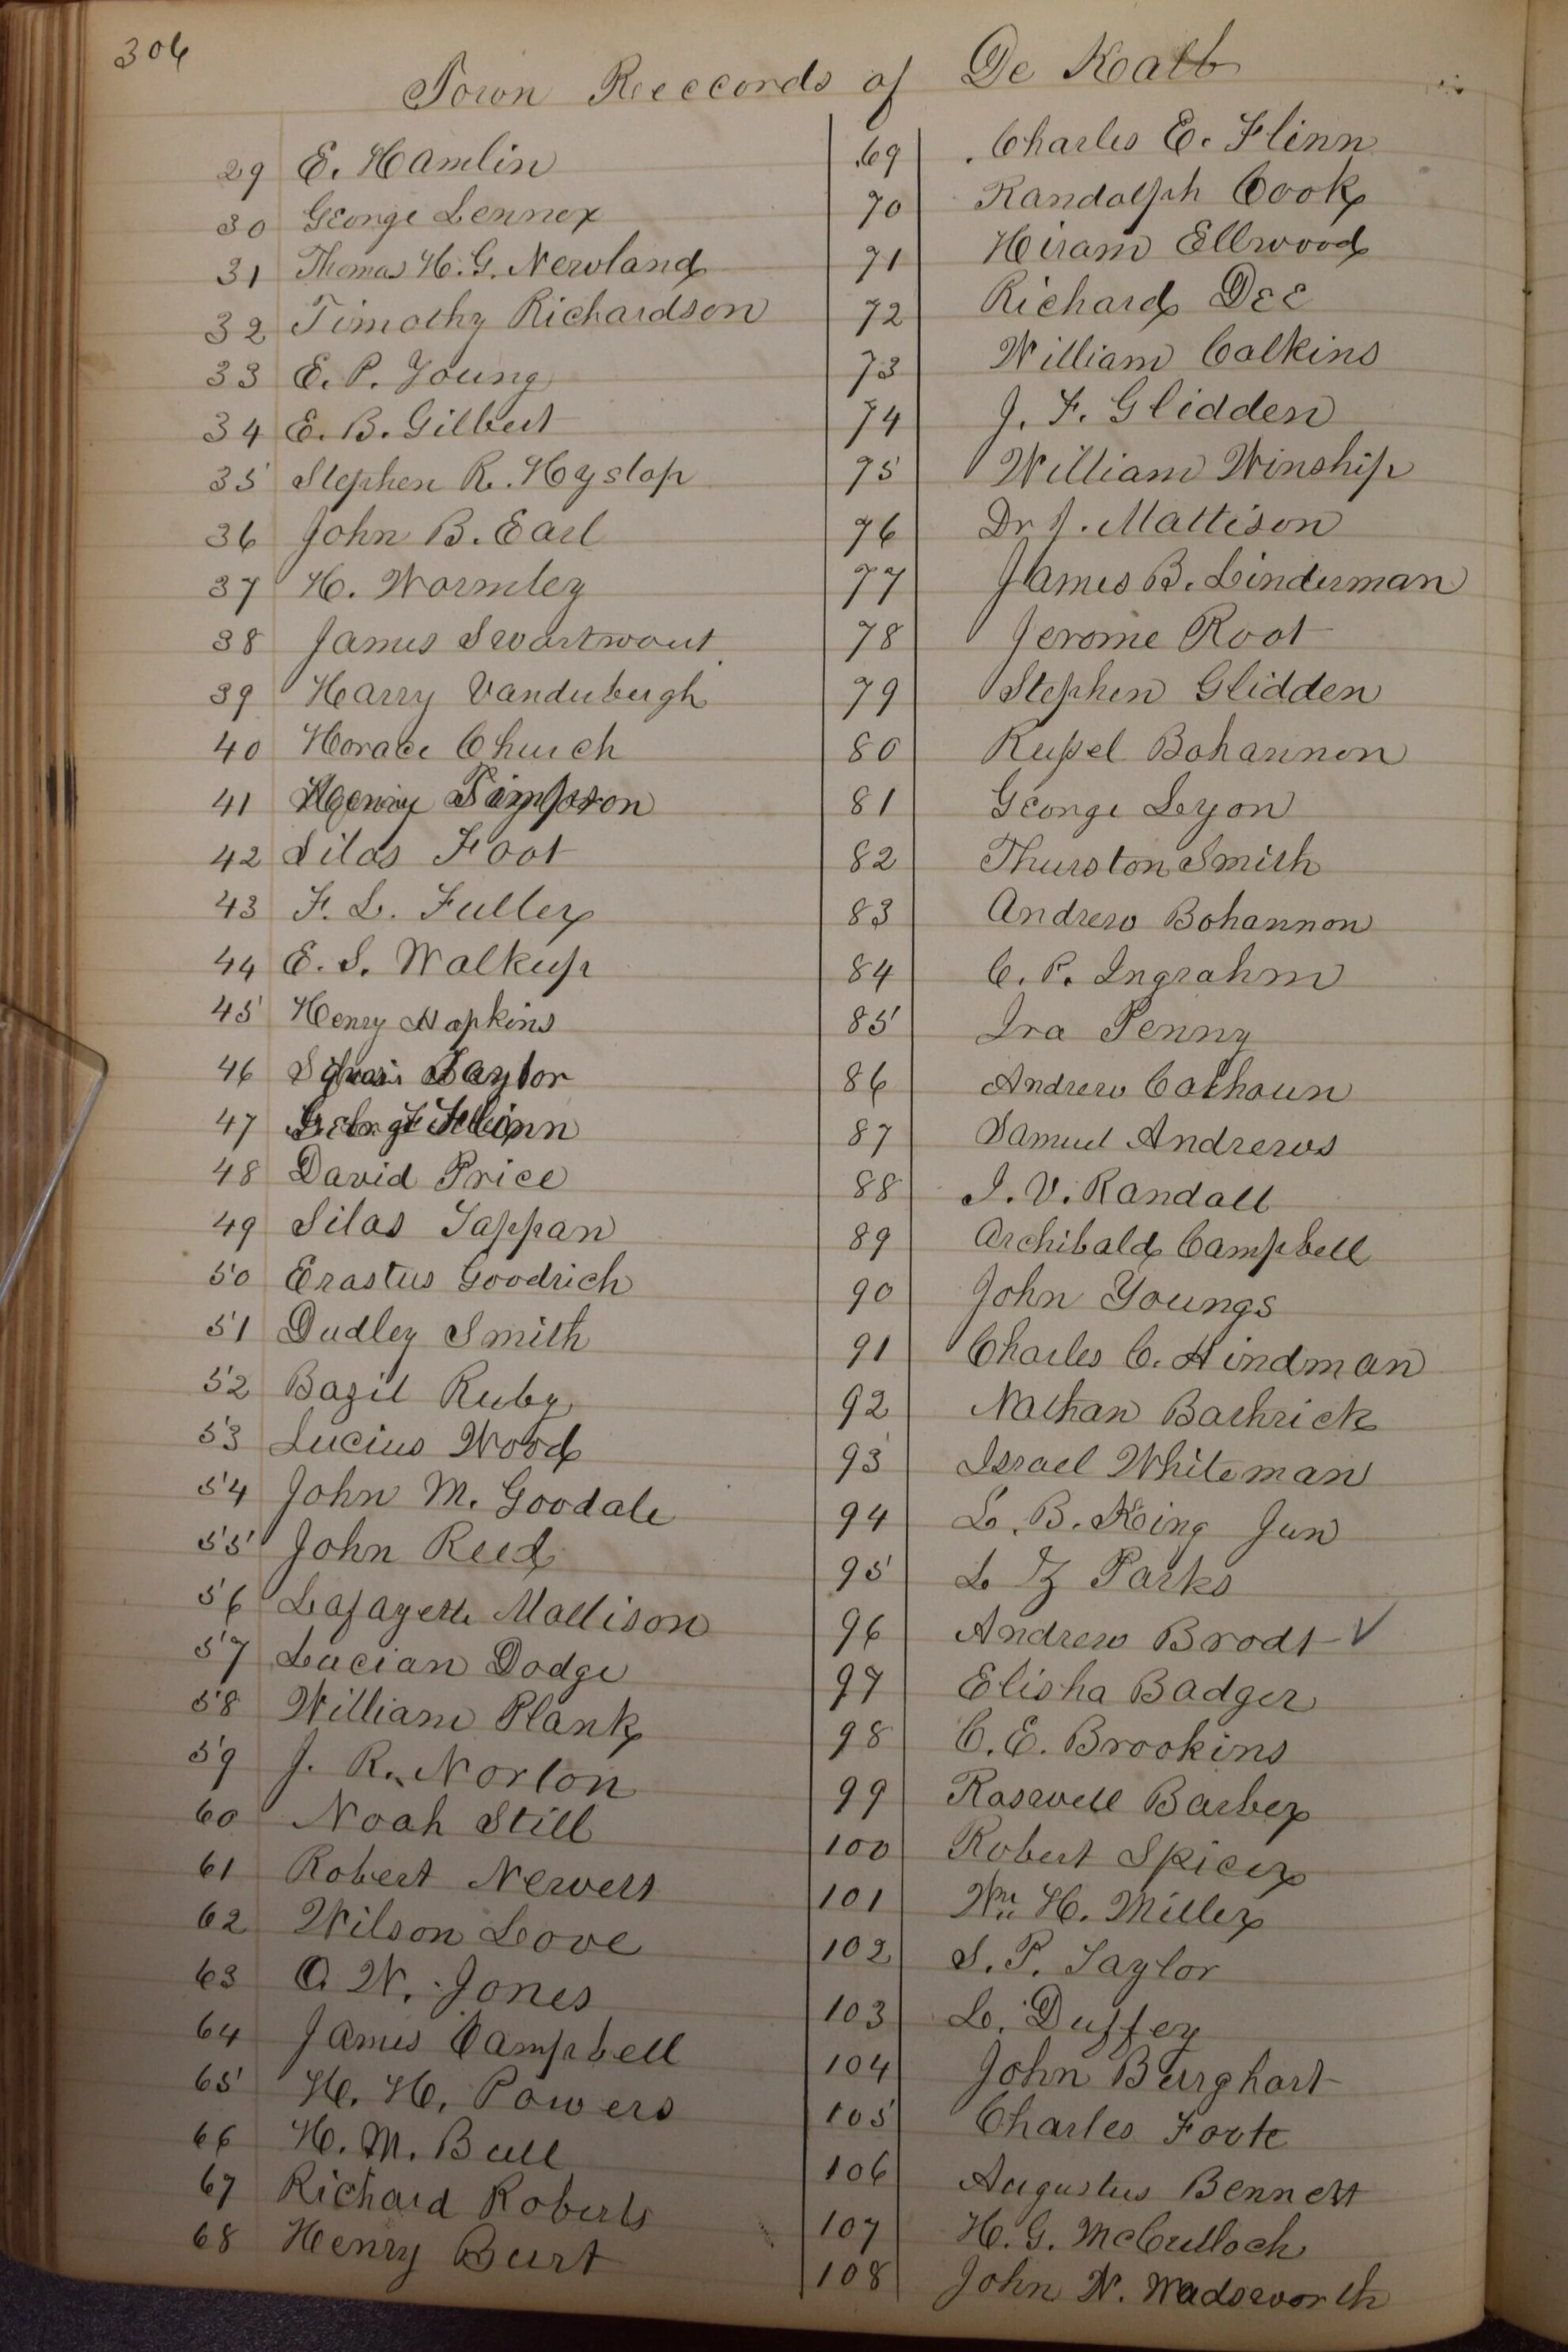 306
Town Reeccords of De Kalb
29 E. Hamlin
30 George Lennox
31 Thomas H. G. Newland
32 Timothy Richardson
33 E. P. Young
34 E. B. Gilbert
35 Stephen R. Hyslop
36 John B. Earl
37 H. Wormley
38 James Swartwout
39 Harry Vanderburgh
40 Horace Church
41 Henry Simpson
42 Silas Foot
43 F. L. Fuller
44 E. S. Walkup
45 Henry Hopkins
46 Taylor
47 George Flinn
48 David Price
49 Silas Tappan
50 Erastus Goodrich
51 Dudley Smith
52 Bazil Ruby
53 Lucius Wood
54 John M. Goodale
55 John Reed
56 Lafayette Mattison
57 Lucian Dodge
58 William Plank
59 J. R. Norton
60 Noah Still
61 Robert Newett
62 Wilson Love
63 O W. Jones
64 James Campbell
65 H. H. Powers
66 H. M. Bull
67 Richard Roberts
68 Henry Burt
69 Charles E. Flinn
70 Randolph Cook
71 Hiram Ellwood
72 Richard Dee
73 William Calkins
74 J. F. Glidden
75 William Winship
76 Dr J. Mattison
77 James B. Linderman
78 Jerome Root
79 Stephen Glidden
80 Russel Bohannon
81 George Lyon
82 Thurston Smith
83 Andrew Bohannon
84 C. P. Ingrahm
85 Ira Penny
86 Andrew Calhoun
87 Samuel Andrews
88 I. V. Randall
89 Archibald Campbell
90 John Youngs
91 Charles C. Hindman
92 Nathan Bathrick
93 Israel Whiteman
94 L. B. King Jun
95 L Z Parks
96 Andrew Brodt ✓
97 Elisha Badger
98 C. E. Brookins
99 Roswell Barber
100 Robert Spicer
101 Wm H. Miller
102 S. P. Taylor
103 L. Duffey
104 John Burghart
105 Charles Foote
106 Augustus Bennett
107 H. G. McCulloch
108 John N. Wadsworth